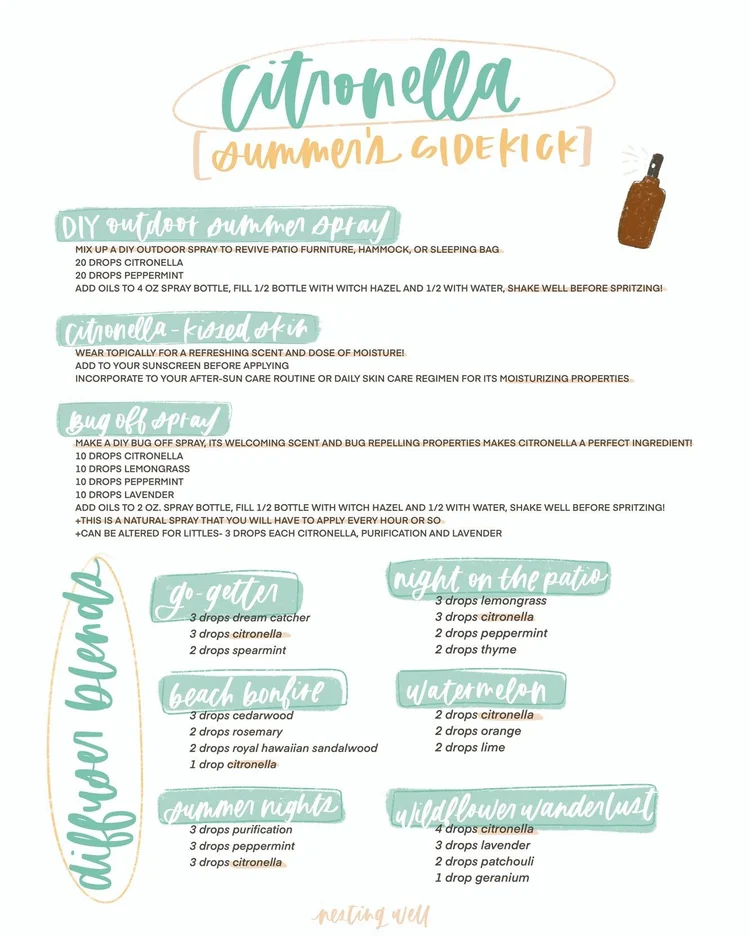 citronella
[summer's SIDEKICK]
DIY outdoor summer spray
MIX UP A DIY OUTDOOR SPRAY TO REVIVE PATIO FURNITURE, HAMMOCK, OR SLEEPING BAG
20 DROPS CITRONELLA
20 DROPS PEPPERMINT
ADD OILS TO 4 OZ SPRAY BOTTLE, FILL 1/2 BOTTLE WITH WITCH HAZEL AND 1/2 WITH WATER, SHAKE WELL BEFORE SPRITZING!
citronella-kissed skin
WEAR TOPICALLY FOR A REFRESHING SCENT AND DOSE OF MOISTURE!
ADD TO YOUR SUNSCREEN BEFORE APPLYING
INCORPORATE TO YOUR AFTER-SUN CARE ROUTINE OR DAILY SKIN CARE REGIMEN FOR ITS MOISTURIZING PROPERTIES
Bug off spray
MAKE A DIY BUG OFF SPRAY, ITS WELCOMING SCENT AND BUG REPELLING PROPERTIES MAKES CITRONELLA A PERFECT INGREDIENT!
10 DROPS CITRONELLA
10 DROPS LEMONGRASS
10 DROPS PEPPERMINT
10 DROPS LAVENDER
ADD OILS TO 2 OZ. SPRAY BOTTLE, FILL 1/2 BOTTLE WITH WITCH HAZEL AND 1/2 WITH WATER, SHAKE WELL BEFORE SPRITZING!
+THIS IS A NATURAL SPRAY THAT YOU WILL HAVE TO APPLY EVERY HOUR OR SO
+CAN BE ALTERED FOR LITTLES- 3 DROPS EACH CITRONELLA, PURIFICATION AND LAVENDER
diffuser blends
go-getter
3 drops dream catcher
3 drops citronella
2 drops spearmint
night on the patio
3 drops lemongrass
3 drops citronella
2 drops peppermint
2 drops thyme
beach bonfire
3 drops cedarwood
2 drops rosemary
2 drops royal hawaiian sandalwood
1 drop citronella
watermelon
2 drops citronella
2 drops orange
2 drops lime
summer nights
3 drops purification
3 drops peppermint
3 drops citronella
wildflower wanderlust
4 drops citronella
3 drops lavender
2 drops patchouli
1 drop geranium
nesting well